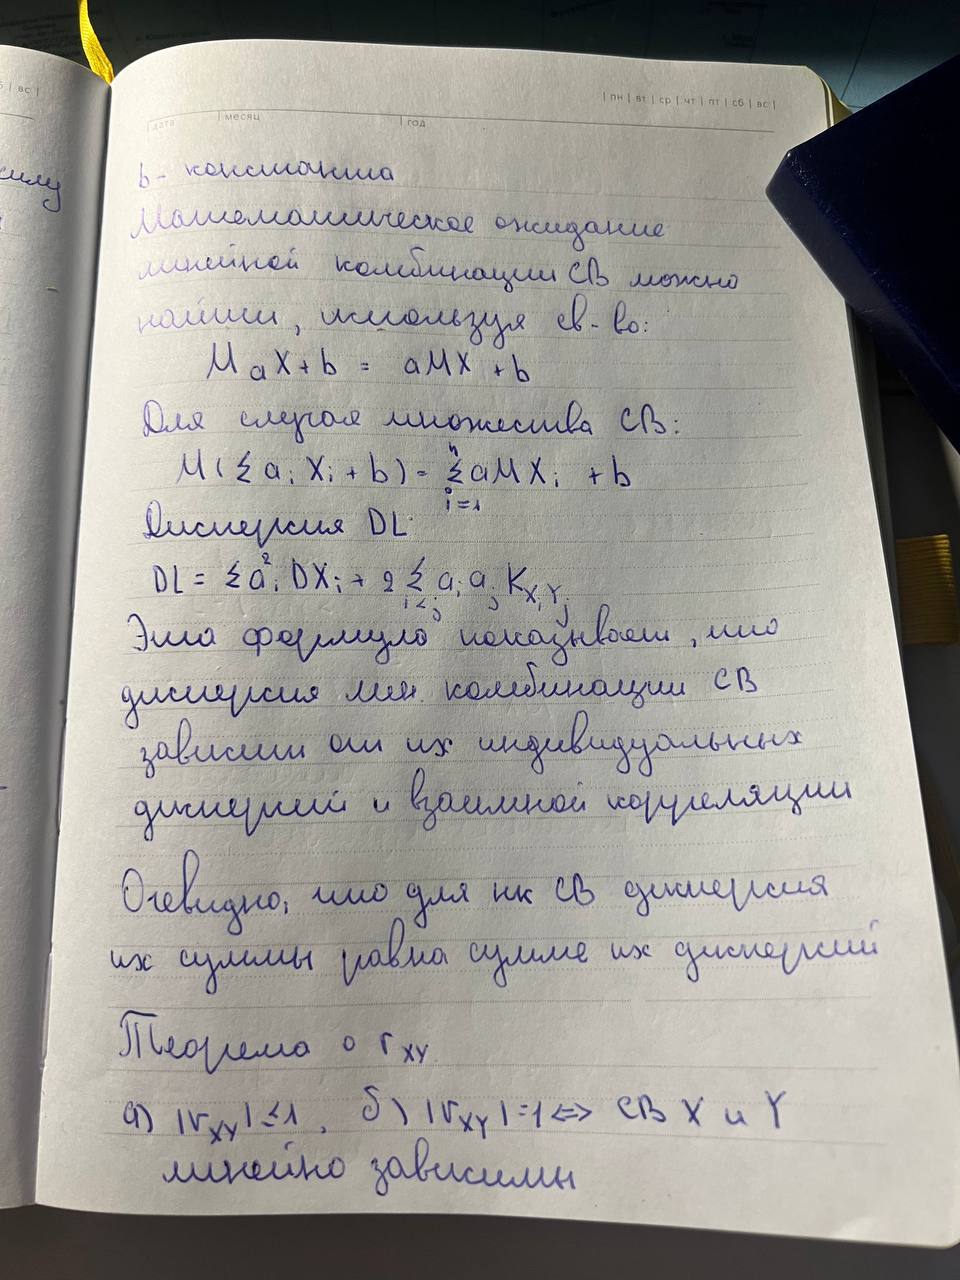 б | вс |
| пн | вт | ср | чт | пт | сб | вс |
| дата | месяц | год
силу
b - константа
Математическое ожидание
линейной комбинации СВ можно
найти, используя св-во:
MaX+b = aMX +b
Для случая множества СВ:
M(Σaᵢ Xᵢ + b) = Σⁿᵢ₌₁ aMXᵢ + b
Дисперсия DL:
DL = Σa²ᵢ DXᵢ + 2 Σ_{i<j} aᵢ aⱼ K_{XᵢYⱼ}
Эта формула показывает, что
дисперсия лин. комбинации СВ
зависит от их индивидуальных
дисперсий и взаимной корреляции
Очевидно, что для нк СВ дисперсия
их суммы равна сумме их дисперсий
Теорема о r_{XY}
а) |r_{XY}| ≤ 1, б) |r_{XY}| = 1 ⇔ СВ X и Y
линейно зависимы